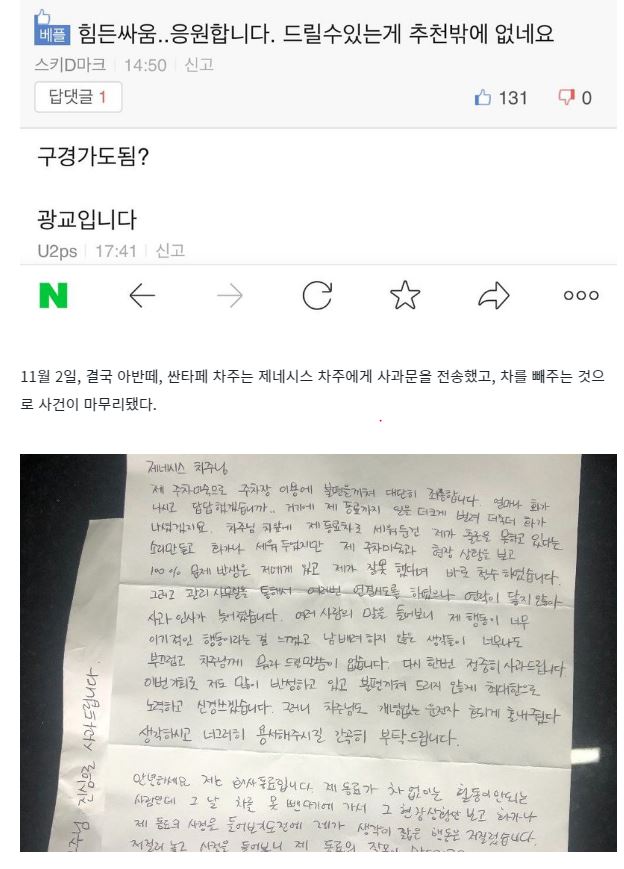 베플 힘든싸움..응원합니다. 드릴수있는게 추천밖에 없네요
스키D마크 14:50 신고
답댓글 1 131 0
구경가도됨?
광교입니다
U2ps 17:41 신고
N
11월 2일, 결국 아반떼, 싼타페 차주는 제네시스 차주에게 사과문을 전송했고, 차를 빼주는 것으
로 사건이 마무리됐다.
제네시스 차주님
제 주차미숙으로 주차장 이용에 불편을끼쳐 대단히 죄송합니다. 얼마나 화가
나시고 답답하겠습니까.. 거기에 제 동료까지 일을 더크게 벌려 더욱더 화가
나셨겠지요. 차주님 차앞에 제 동료차로 세워둔건 제가 출근을 못하고 있다는
소리만듣고 화가나 세워 두었지만 제 주차미숙과 현장 상황을 보고
100% 문제 발생은 저에게 있고 제가 잘못 했다며 바로 철수 하였습니다.
그리고 관리 사무실을 통해서 여러번 연결시도를 하였으나 연락이 닿지 않아
사과 인사가 늦어졌습니다. 여러 사람의 말을 들어보니 제 행동이 너무
이기적인 행동이라는 걸 느꼈고 남 배려 하지 않은 생각들이 너무나도
부끄럽고 차주님께 드릴말씀이 없습니다. 다시 한번 정중히 사과드립니다
이번기회로 저도 많이 반성하고 있고 불편끼쳐 드리지 않게 최대한으로
노력하고 신경쓰겠습니다. 그러니 차주님도 개념없는 운전자 호되게 혼내줬다
생각하시고 너그러히 용서해주시길 간곡히 부탁드립니다.
안녕하세요 저는 회사동료입니다. 제 동료가 차 없이는 활동이안되는
사람인데 그 날 차를 못 뺀다기에 가서 그 현장상황만 보고 화가나
제 동료의 사정을 들어보기도전에 제가 생각이 짧은 행동을 저질렀습니다.
저질러 놓고 사정을 들어보니 제 동료의 잘못이
주님 진심으로 사과드립니다.